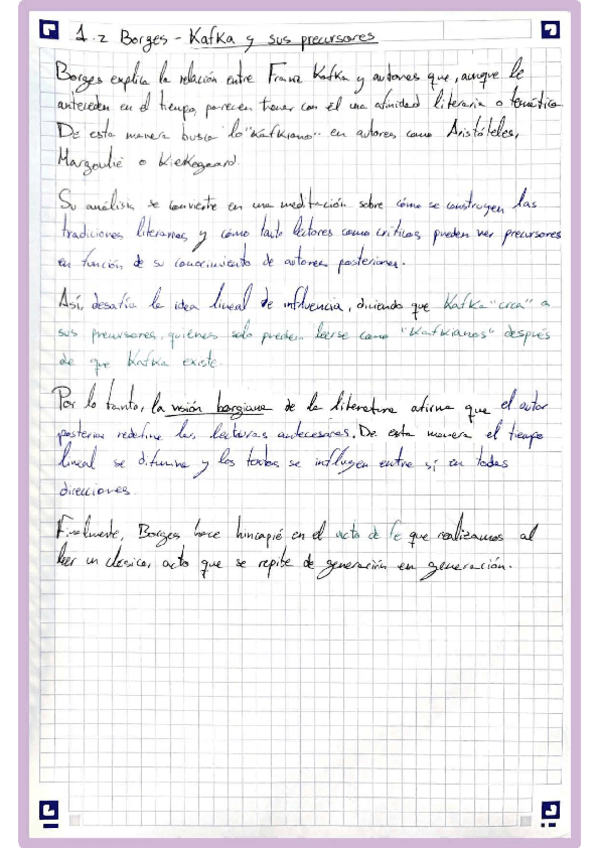 1.2 Borges - Kafka y sus precursores
Borges explica la relación entre Franz Kafka y autores que, aunque le
anteceden en el tiempo, parecen tener con él una afinidad literaria o temática.
De esta manera busca lo "Kafkiano" en autores como Aristóteles,
Margoulié o Kiekegaard.
Su análisis se convierte en una meditación sobre cómo se construyen las
tradiciones literarias, y cómo tanto lectores como críticos, pueden ver precursores
en función de su conocimiento de autores posteriores.
Así, desafía la idea lineal de influencia, diciendo que Kafka "crea" a
sus precursores, quiénes solo pueden leerse como "Kafkianos" después
de que Kafka existe.
Por lo tanto, la visión borgiana de la literatura afirma que el autor
posterior redefine las lecturas antecesores. De esta manera el tiempo
lineal se difumina y los textos se influyen entre sí en todas
direcciones.
Finalmente, Borges hace hincapié en el acto de fe que realizamos al
leer un clásico, acto que se repite de generación en generación.